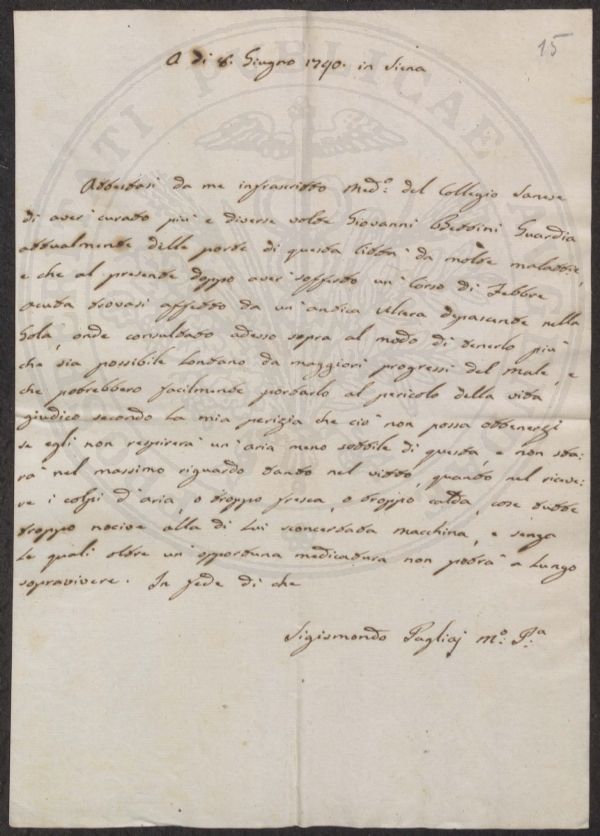 15
A dì 8. Giugno 1790. in Siena
Attestasi da me infrascritto Med:o del Collegio Sanese
di aver' curato più e diverse volte Giovanni Bettini Guardia
attualmente delle porte di questa Città da molte malattie,
e che al presente doppo aver' sofferto un' Corso di Febbre
acuta trovasi affetto da un' antica Ulcera depascente nella
Gola, onde consultato adesso sopra al modo di tenerlo più
che sia possibile Lontano da maggiori progressi del male, e
che potrebbero facilmente portarlo al pericolo della vita
giudico secondo La mia perizia che ciò non possa ottenersi
se egli non respirerà un' aria meno sottile di questa, e non sta:
rà nel massimo riguardo tanto nel vitto, quanto nel riceve:
re i colpi d'aria, o troppo fresca, o troppo calda, cose tutte
troppo nocive alla di Lui sconcertata macchina, e senza
Le quali oltre un' opportuna medicatura non potrà a Lungo
sopravivere. In fede di che
Sigismondo Pagliaj M:o P:a